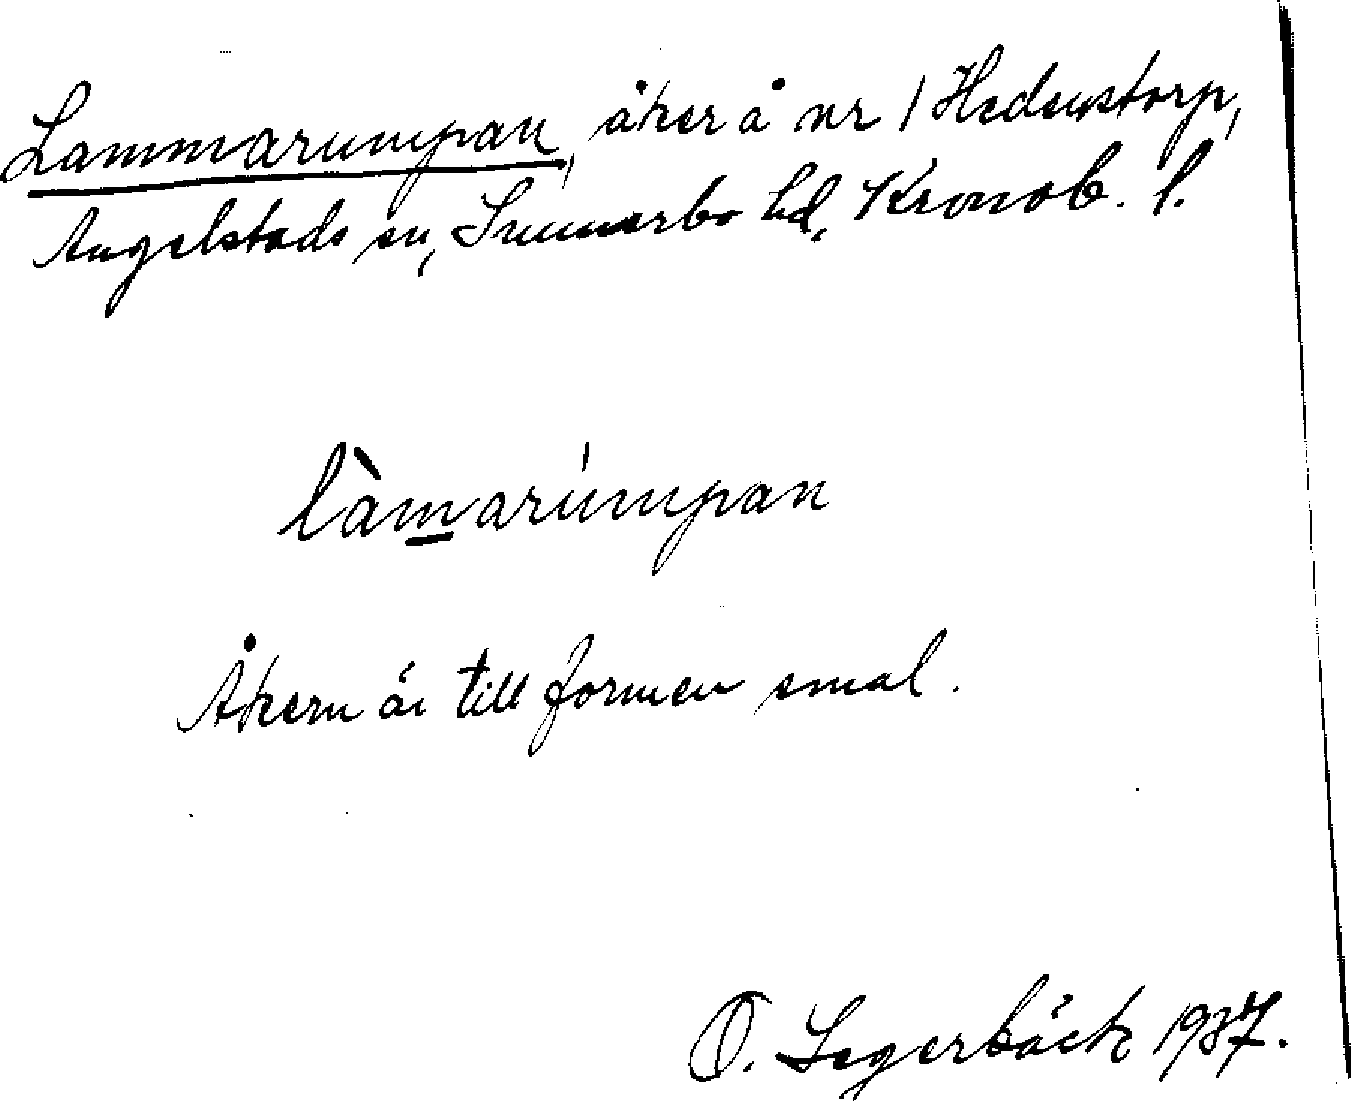 Lammarumpan, åker å nr 1 Hedenstorp,
Angelstads sn, Sunnerbo hd, Kronob. l.
làmarúmpan
Åkern är till formen smal.
O. Segerbäck 1937.